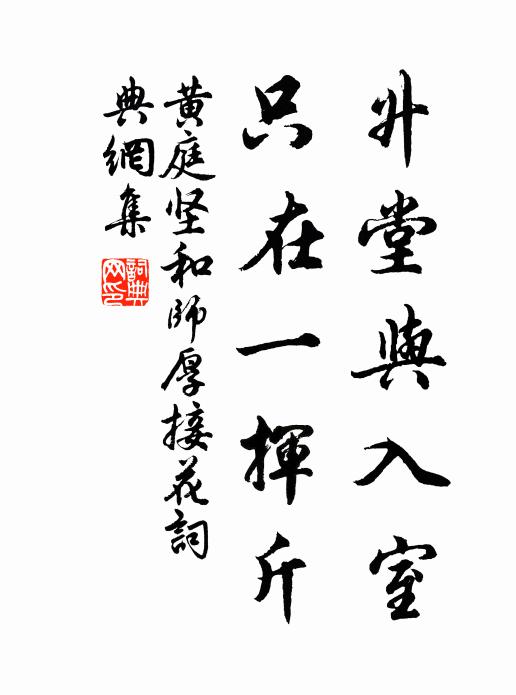 升堂與入室
只在一揮斤
黄庭坚和師厚接花詞
典網集
詞典
网印